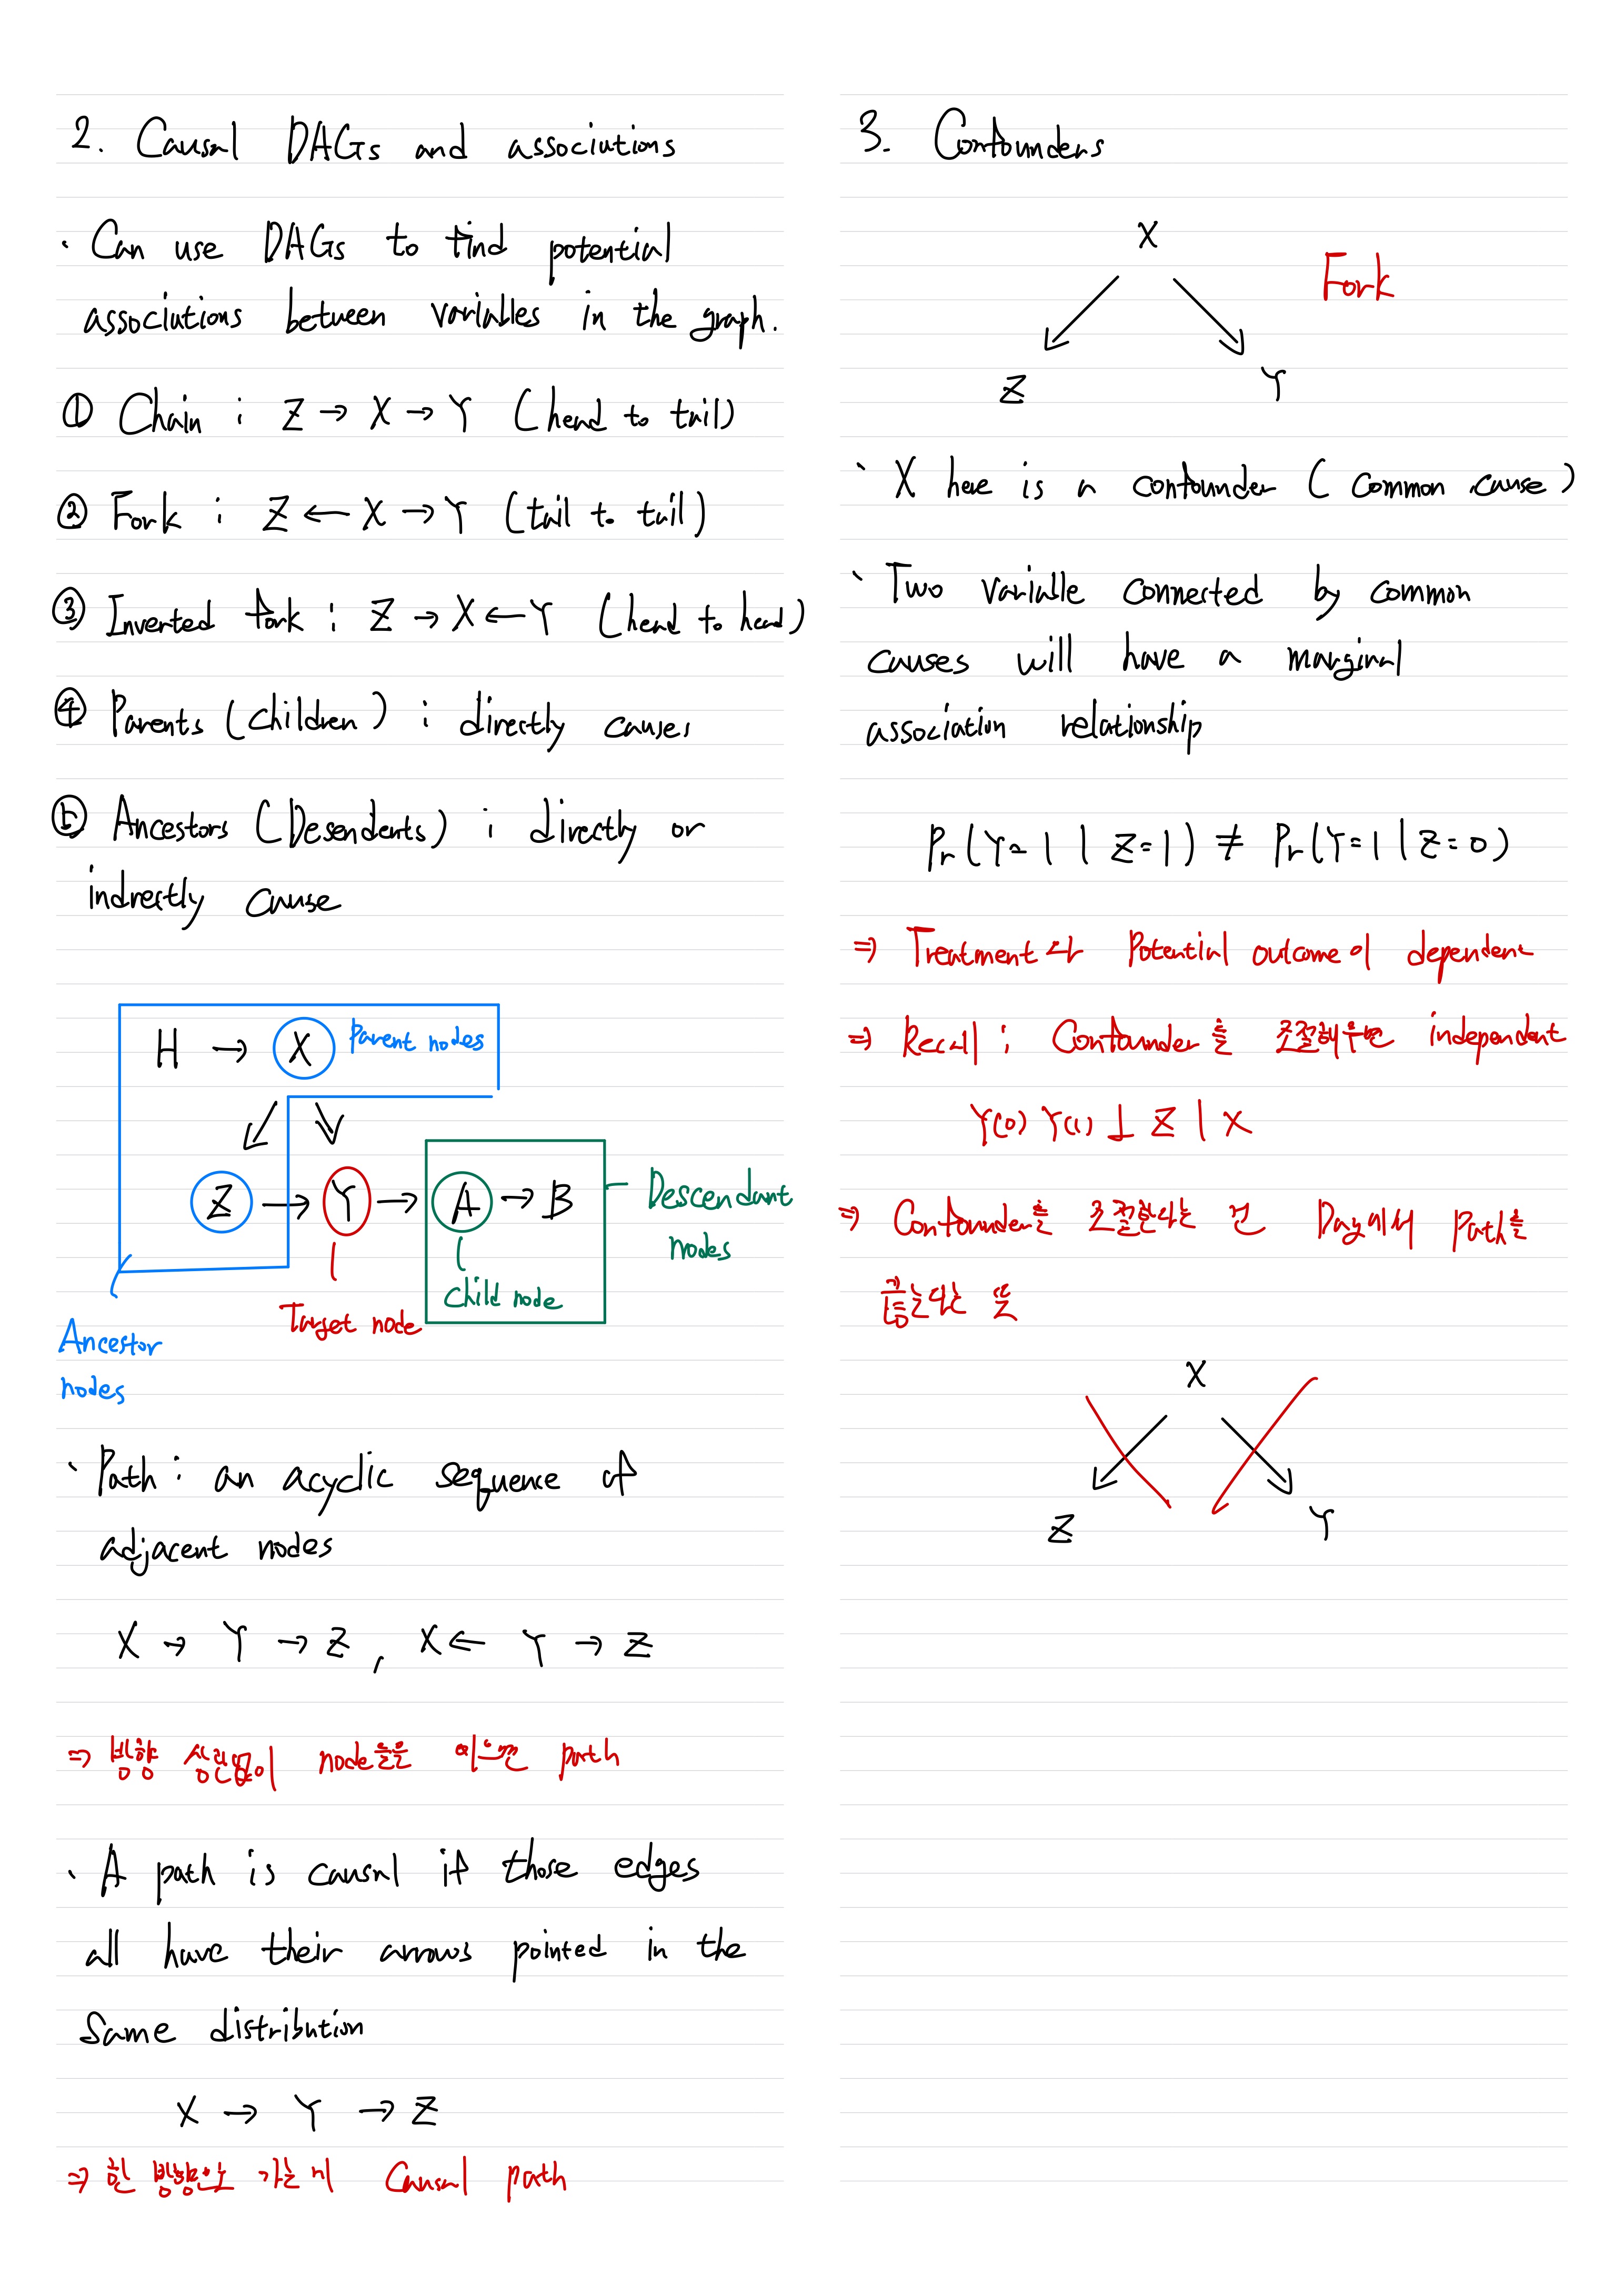 2. Causal DAGs and associations
· Can use DAGs to find potential
associations between variables in the graph.
① Chain : Z → X → Y (head to tail)
② Fork : Z ← X → Y (tail to tail)
③ Inverted fork : Z → X ← Y (head to head)
④ Parents (children) : directly causes
⑤ Ancestors (Desendents) : directly or
indirectly cause
H → X Parent nodes
Z → Y → A → B
Descendant
nodes
Child node
Target node
Ancestor
nodes
· Path : an acyclic sequence of
adjacent nodes
X → Y → Z , X ← Y → Z
⇒ 방향 상관없이 node들을 이으면 path
· A path is causal if those edges
all have their arrows pointed in the
same distribution
X → Y → Z
⇒ 한 방향으로 가는 게 Causal path
3. Confounders
X
Fork
Z Y
· X here is a confounder (common cause)
· Two variable connected by common
causes will have a marginal
association relationship
Pr(Y=1 | Z=1) ≠ Pr(Y=1 | Z=0)
⇒ Treatment와 Potential outcome이 dependent
⇒ Recall : Confounder를 조절해주면 independent
Y(0) Y(1) ⊥ Z | X
⇒ Confounder를 조절한다는 건 Dag에서 path를
끊는다는 뜻
X
Z Y